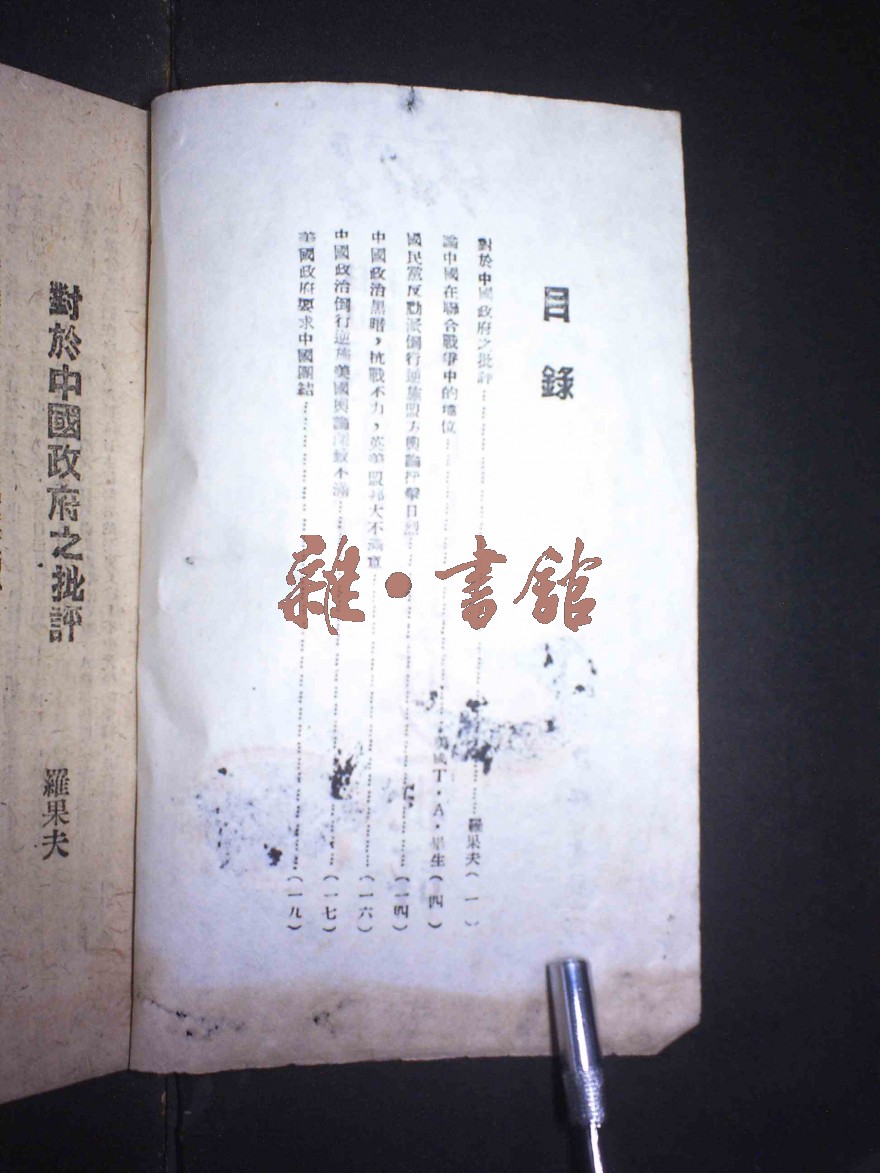 目錄
對於中國政府之批評……羅果夫(一)
論中國在聯合戰爭中的地位……美國T·A·畢生(四)
國民黨反動派倒行逆施盟方輿論抨擊日烈……(一四)
中國政治黑暗,抗戰不力,英美盟邦大不滿意……(一六)
中國政治倒行逆施美國輿論深致不滿……(一七)
美國政府要求中國團結……(一九)
對於中國政府之批評
羅果夫
雜·書館